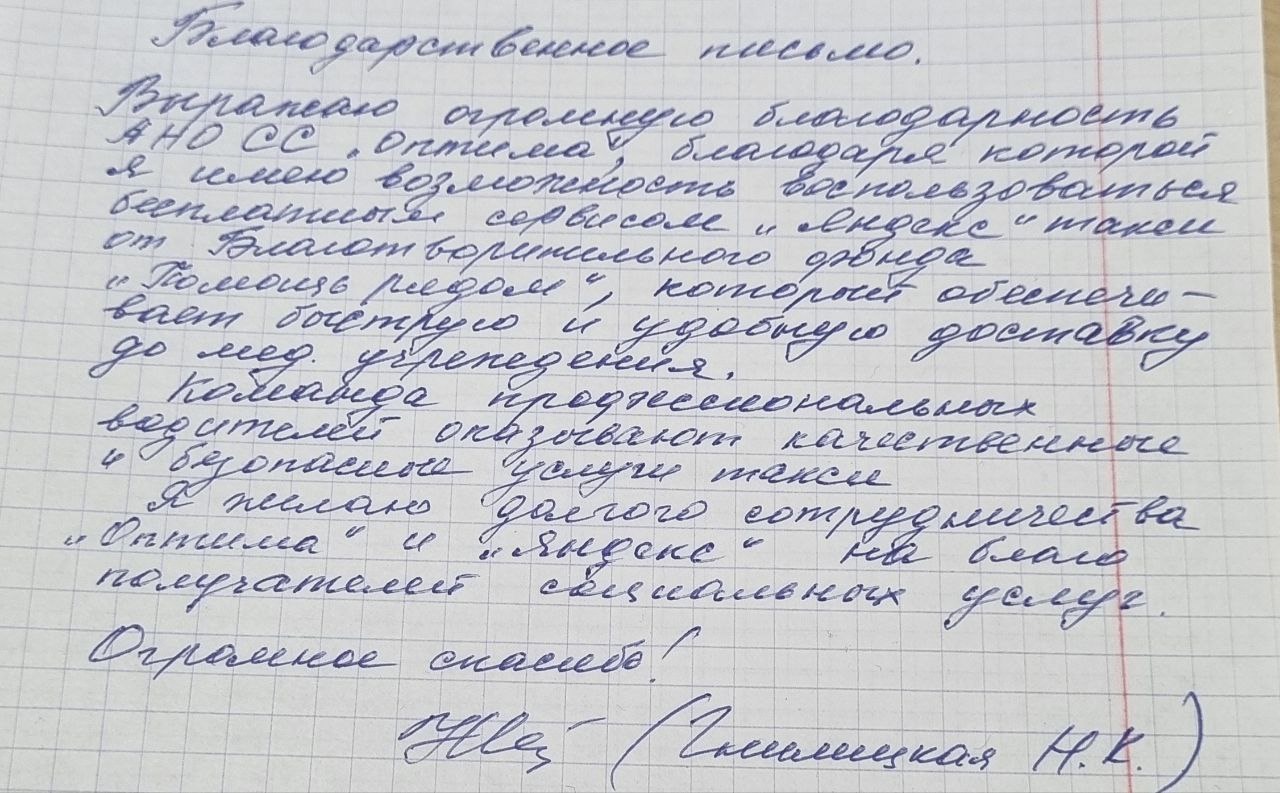 Благодарственное письмо.
Выражаю огромную благодарность
АНО СС „Оптима“, благодаря которой
я имею возможность воспользоваться
бесплатным сервисом „Яндекс“ такси
от Благотворительного фонда
„Помощь рядом“, который обеспечи-
вает быструю и удобную доставку
до мед. учреждения.
Команда профессиональных
водителей оказывают качественные
и безопасные услуги такси
Я желаю долгого сотрудничества
„Оптима“ и „Яндекс“ на благо
получателей социальных услуг.
Огромное спасибо!
(Гнилицкая Н.К.)